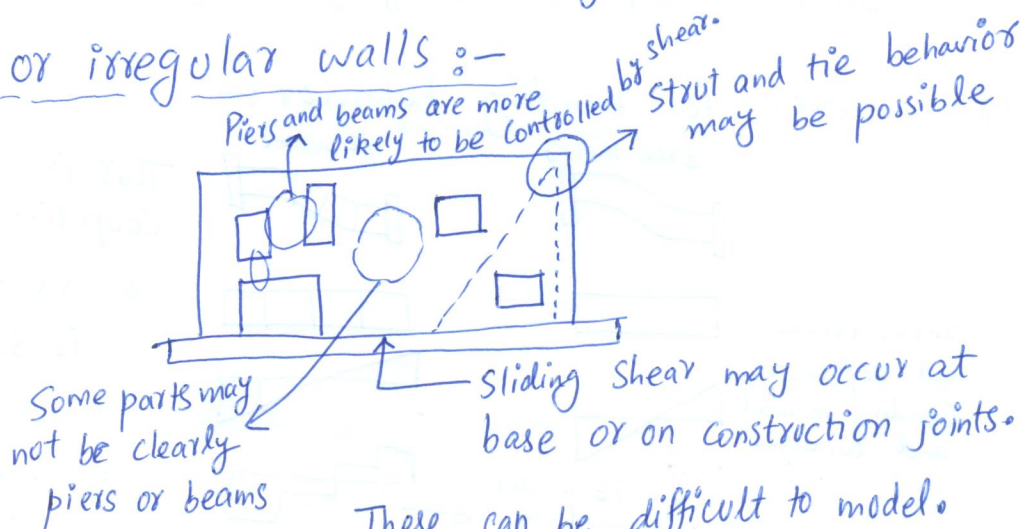 or irregular walls :-
Piers and beams are more
likely to be controlled by shear.
Strut and tie behavior
may be possible
Some parts may
not be clearly
piers or beams
Sliding Shear may occur at
base or on construction joints.
These can be difficult to model.